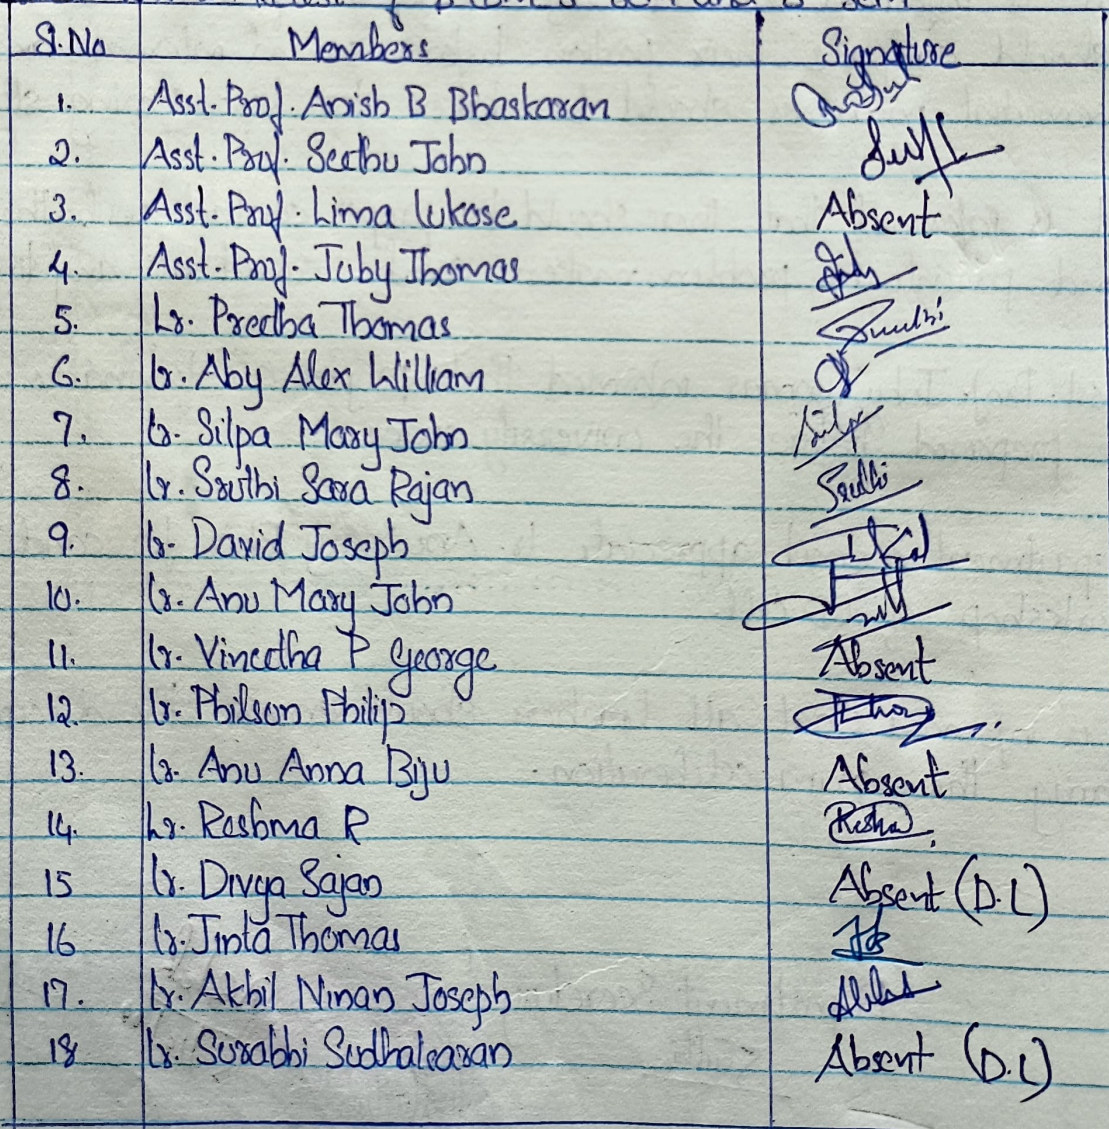 Sl.No Members Signature
1. Asst. Prof. Anish B Bhaskaran
2. Asst. Prof. Seethu John
3. Asst. Prof. Lima Lukose Absent
4. Asst. Prof. Juby Thomas
5. Lr. Preetha Thomas
6. Lr. Aby Alex William
7. Lr. Silpa Mary John Silpa
8. Lr. Sruthi Sara Rajan Sruthi
9. Lr. David Joseph
10. Lr. Anu Mary John
11. Lr. Vineetha P George Absent
12. Lr. Philson Philip
13. Lr. Anu Anna Biju Absent
14. Lr. Reshma R
15 Lr. Divya Sajan Absent (D.L)
16 Lr. Jinta Thomas
17. Lr. Akhil Ninan Joseph
18 Lr. Surabhi Sudhakaran Absent (D.L)